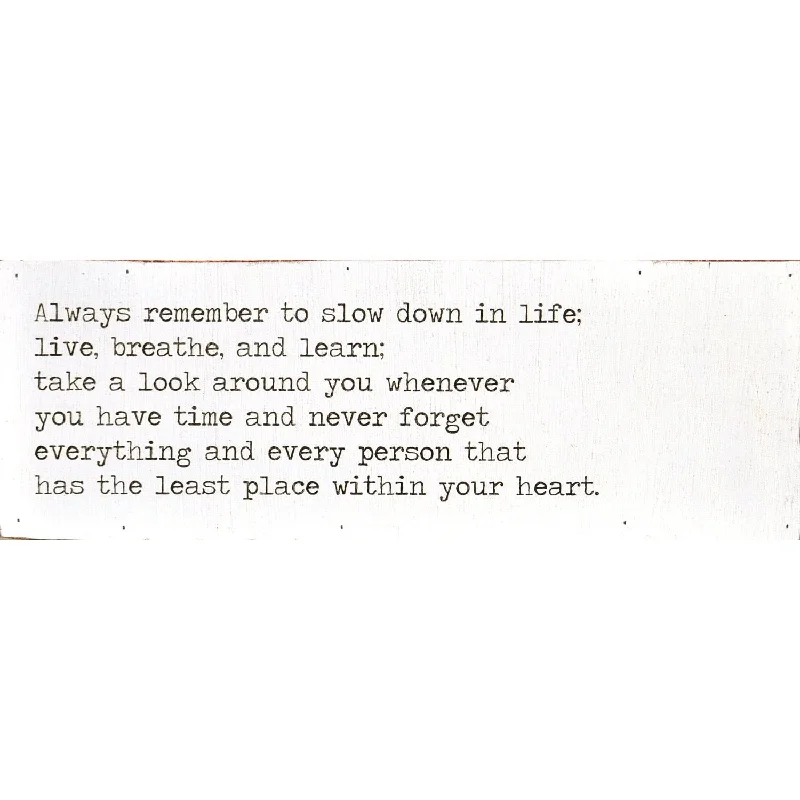 Always remember to slow down in life;
live, breathe, and learn;
take a look around you whenever
you have time and never forget
everything and every person that
has the least place within your heart.